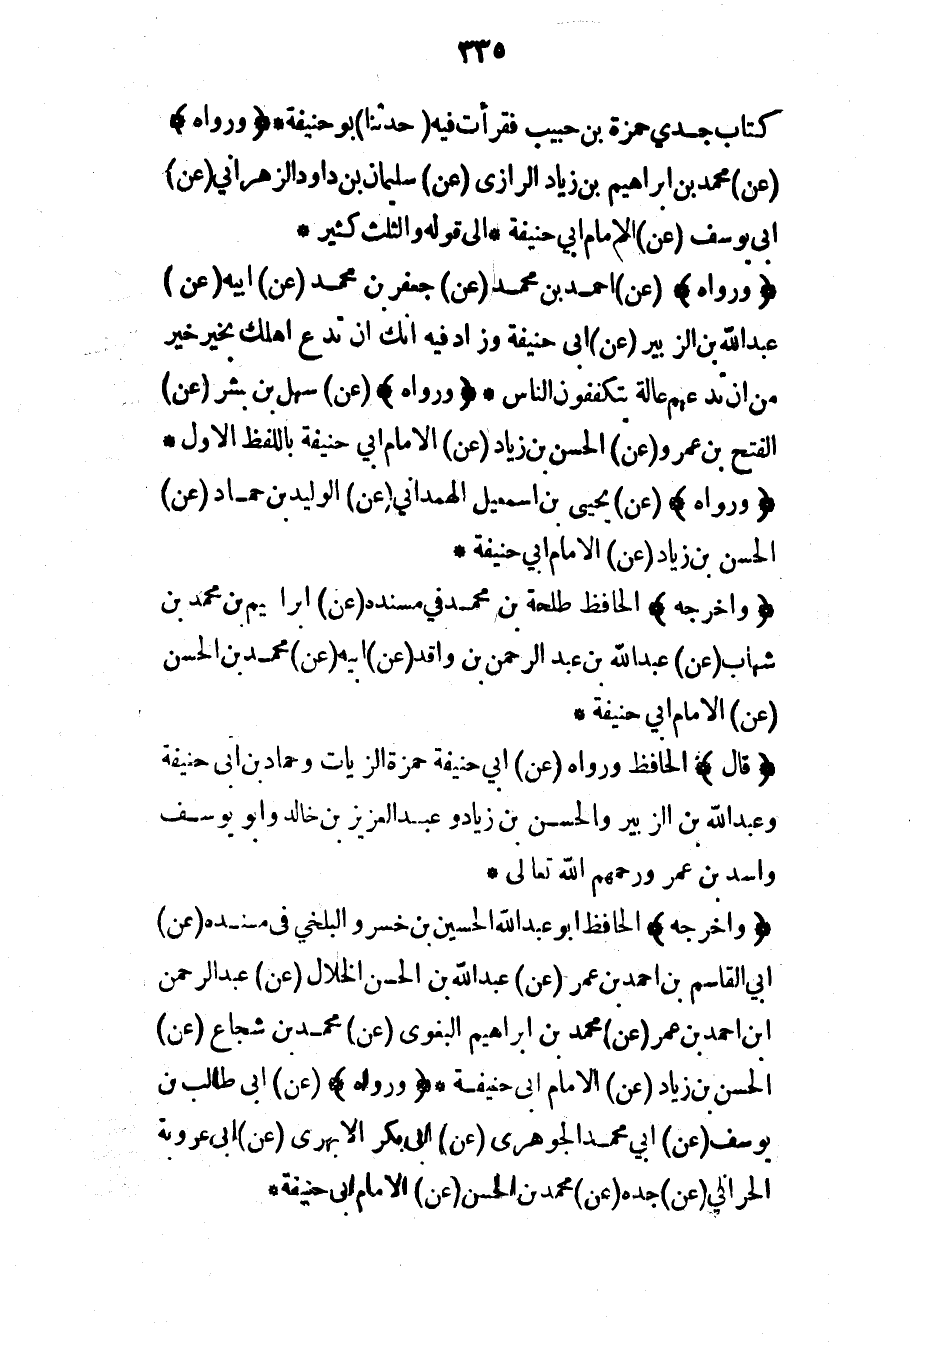 ٣٣٥
كتاب جدي حمزة بن حبيب فقرأت فيه (حدثنا) بو حنيفة * ﴿ ورواه ﴾
(عن) محمد بن ابراهيم بن زياد الرازى (عن) سليمان بن داود الزهراني (عن)
ابى يوسف (عن) الامام ابي حنيفة * الى قوله والثلث كثير *
﴿ ورواه ﴾ (عن) احمد بن محمد (عن) جعفر بن محمد (عن) ابيه (عن)
عبدالله بن الزبير (عن) ابى حنيفة وزاد فيه انك ان تدع اهلك بخير خير
من ان تدعهم عالة يتكففون الناس * ﴿ ورواه ﴾ (عن) سهل بن بشر (عن)
الفتح بن عمرو (عن) الحسن بن زياد (عن) الامام ابي حنيفة باللفظ الاول *
﴿ ورواه ﴾ (عن) يحيى بن اسمعيل الهمداني (عن) الوليد بن حماد (عن)
الحسن بن زياد (عن) الامام ابي حنيفة *
﴿ واخرجه ﴾ الحافظ طلحة بن محمد في مسنده (عن) ابرا يم بن محمد بن
شهاب (عن) عبدالله بن عبد الرحمن بن واقد (عن) ابيه (عن) محمد بن الحسن
(عن) الامام ابي حنيفة *
﴿ قال ﴾ الحافظ ورواه (عن) ابي حنيفة حمزة الزيات وحماد بن ابى حنيفة
وعبدالله بن الزبير والحسن بن زياد وعبدالعزيز بن خالد وابو يوسف
واسد بن عمر ورحمهم الله تعالى *
﴿ واخرجه ﴾ الحافظ ابو عبدالله الحسين بن خسرو البلخي فى مسنده (عن)
ابي القاسم بن احمد بن عمر (عن) عبدالله بن الحسن الخلال (عن) عبدالرحمن
ابن احمد بن عمر (عن) محمد بن ابراهيم البغوى (عن) محمد بن شجاع (عن)
الحسن بن زياد (عن) الامام ابى حنيفة * ﴿ ورواه ﴾ (عن) ابى طالب بن
يوسف (عن) ابي محمد الجوهرى (عن) ابى بكر الابهرى (عن) ابى عروبة
الحراني (عن) جده (عن) محمد بن الحسن (عن) الامام ابى حنيفة *